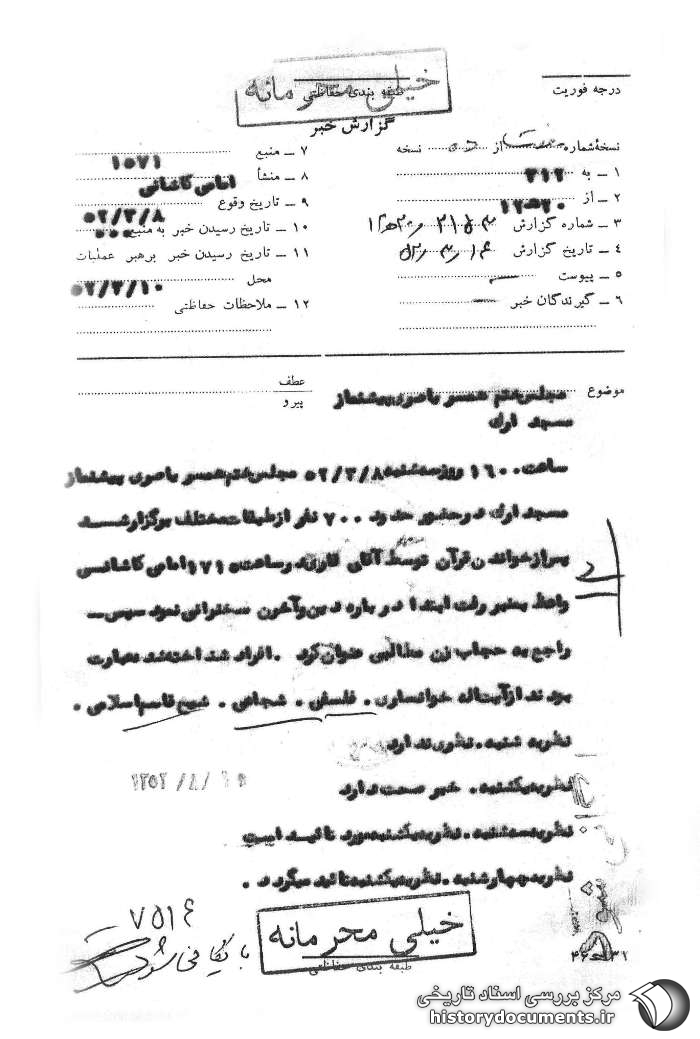 خیلی محرمانه
طبقه بندی حفاظتی
درجه فوریت
گزارش خبر
نسخهٔ شماره از نسخه
۱ ــ به ۳۱۲
۲ ــ از ۲۰ ه‍ ۱۲
۳ ــ شماره گزارش
۴ ــ تاریخ گزارش
۵ ــ پیوست ــ
۶ ــ گیرندگان خبر ــ
۷ ــ منبع ۱۵۷۱
۸ ــ منشأ امامی کاشانی
۹ ــ تاریخ وقوع ۵۲/۳/۸
۱۰ ــ تاریخ رسیدن خبر به منبع
۱۱ ــ تاریخ رسیدن خبر برهبر عملیات
محل ۵۲/۳/۱۰
۱۲ ــ ملاحظات حفاظتی
موضوع مجلس ختم همسر یاصری پیشنماز
مسجد ارک
عطف
پیرو
ساعت ۱۶۰۰ روز سه شنبه ۵۲/۳/۸ مجلس ختم همسر یاصری پیشنماز
مسجد ارک در حضور حدود ۷۰۰ نفر از طبقات مختلف برگزار شد
پس از خواندن قرآن توسط آقای در ساعت ۱۷۱۵ امامی کاشانی
واعظ بمنبر رفت ابتدا در باره دین و آخوند سخنرانی نمود سپس ــ
راجع به حجاب زن مطالبی عنوان کرد . افراد شناخته شده عبارت
بودند از آیت اله خوانساری . فلسفی . شجاعی . شیخ قاسم اسلامی .
نظریه شنبه . نظری ندارد
نظریه یکشنبه . خبر صحت دارد
نظریه سه شنبه . نظریه یکشنبه مورد تائید است
نظریه چهارشنبه . نظریه یکشنبه تائید میگردد .
خیلی محرمانه
طبقه بندی حفاظتی
مرکز بررسی اسناد تاریخی
historydocuments.ir